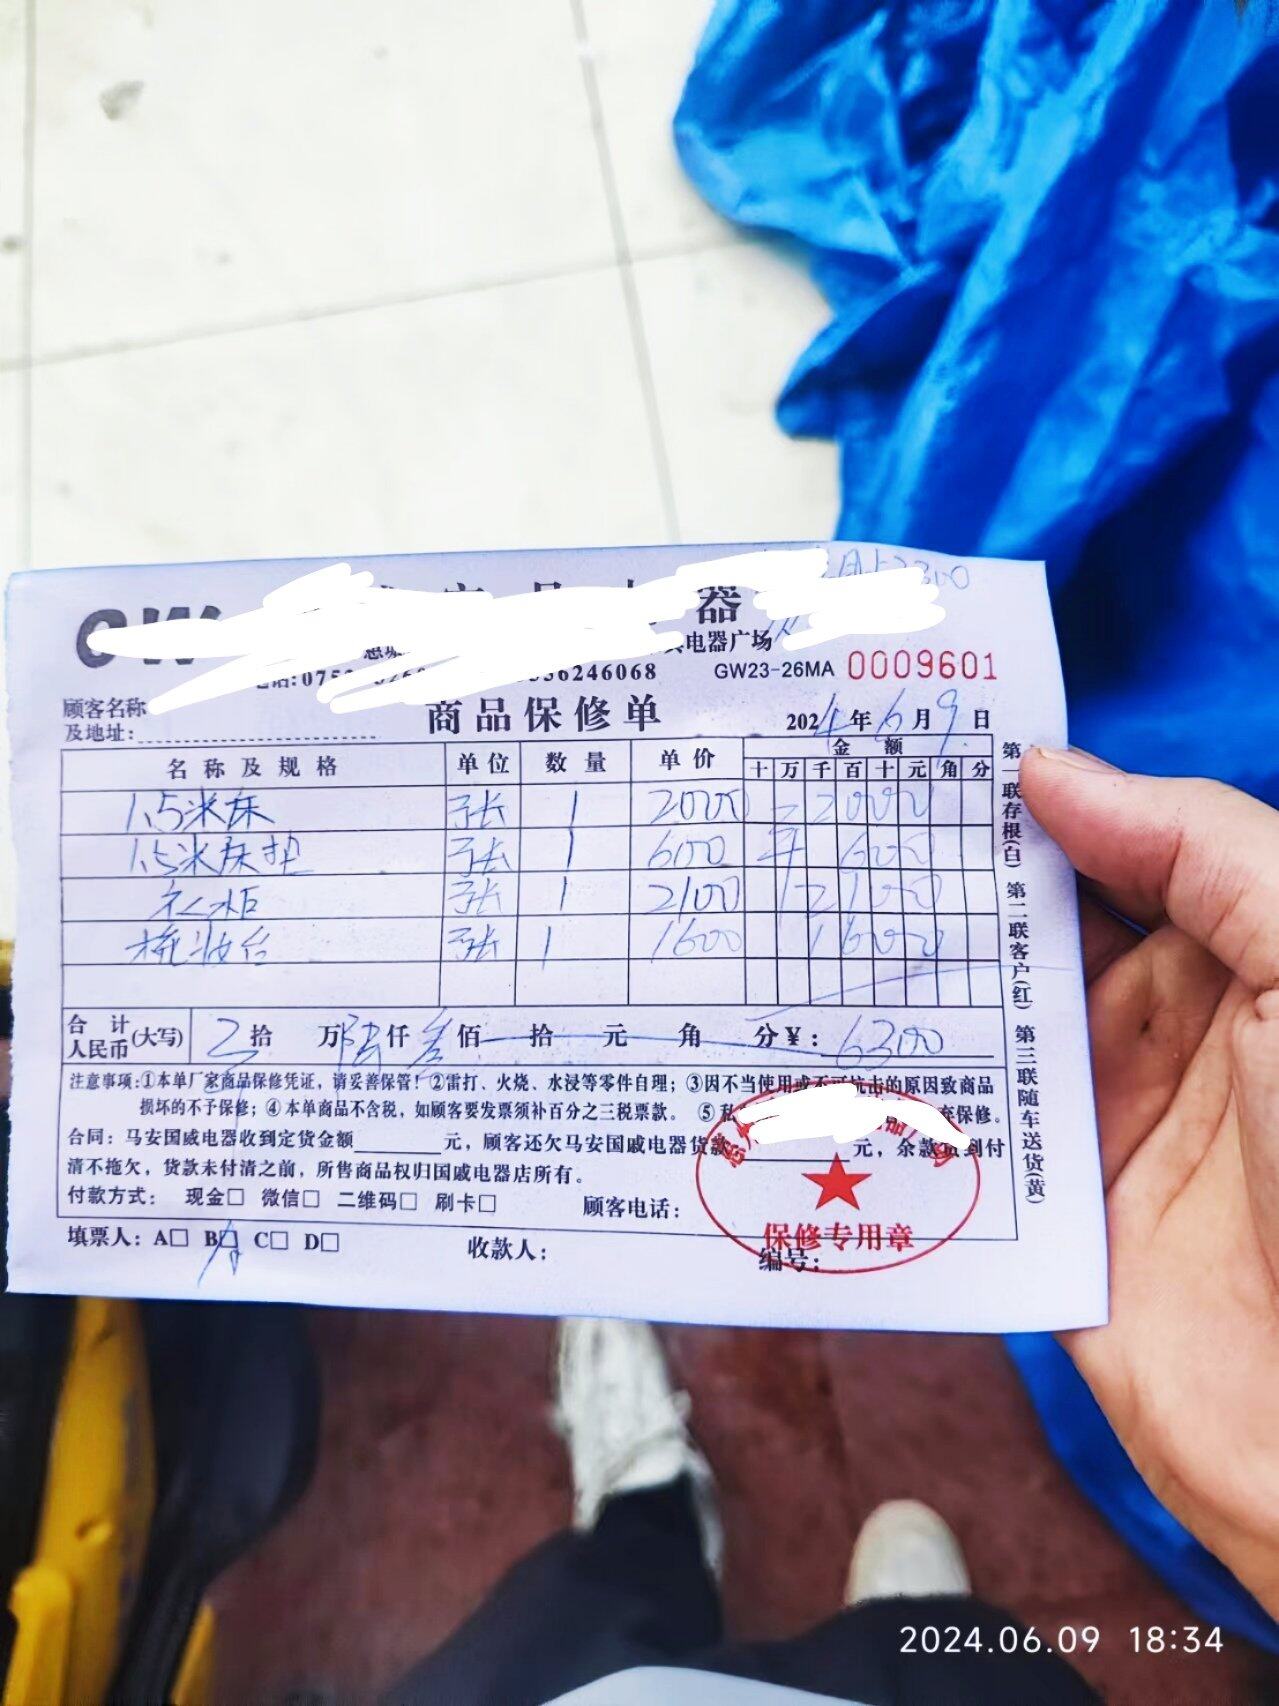 器
电器广场
GW23-26MA 0009601
顾客名称
及地址:
商品保修单
2024年6月9日
名称及规格 单位 数量 单价 金额
十 万 千 百 十 元 角 分
1.5米床 张 1 2000 2000
1.5米床垫 张 1 600 600
衣柜 张 1 2100 2100
梳妆台 张 1 1600 1600
合计人民币(大写) 拾 万 陆仟 叁佰 拾 元 角 分¥: 6300
注意事项:①本单厂家商品保修凭证,请妥善保管!②雷打、火烧、水浸等零件自理;③因不当使用或不可抗击的原因致商品
损坏的不予保修;④本单商品不含税,如顾客要发票须补百分之三税票款。⑤私
保修。
合同:马安国戚电器收到定货金额 元,顾客还欠马安国戚电器货款 元,余款货到付
清不拖欠,货款未付清之前,所售商品权归国戚电器店所有。
付款方式: 现金□ 微信□ 二维码□ 刷卡□ 顾客电话:
填票人: A□ B□ C□ D□ 收款人: 编号:
保修专用章
第一联存根(白) 第二联客户(红) 第三联随车送货(黄)
2024.06.09 18:34